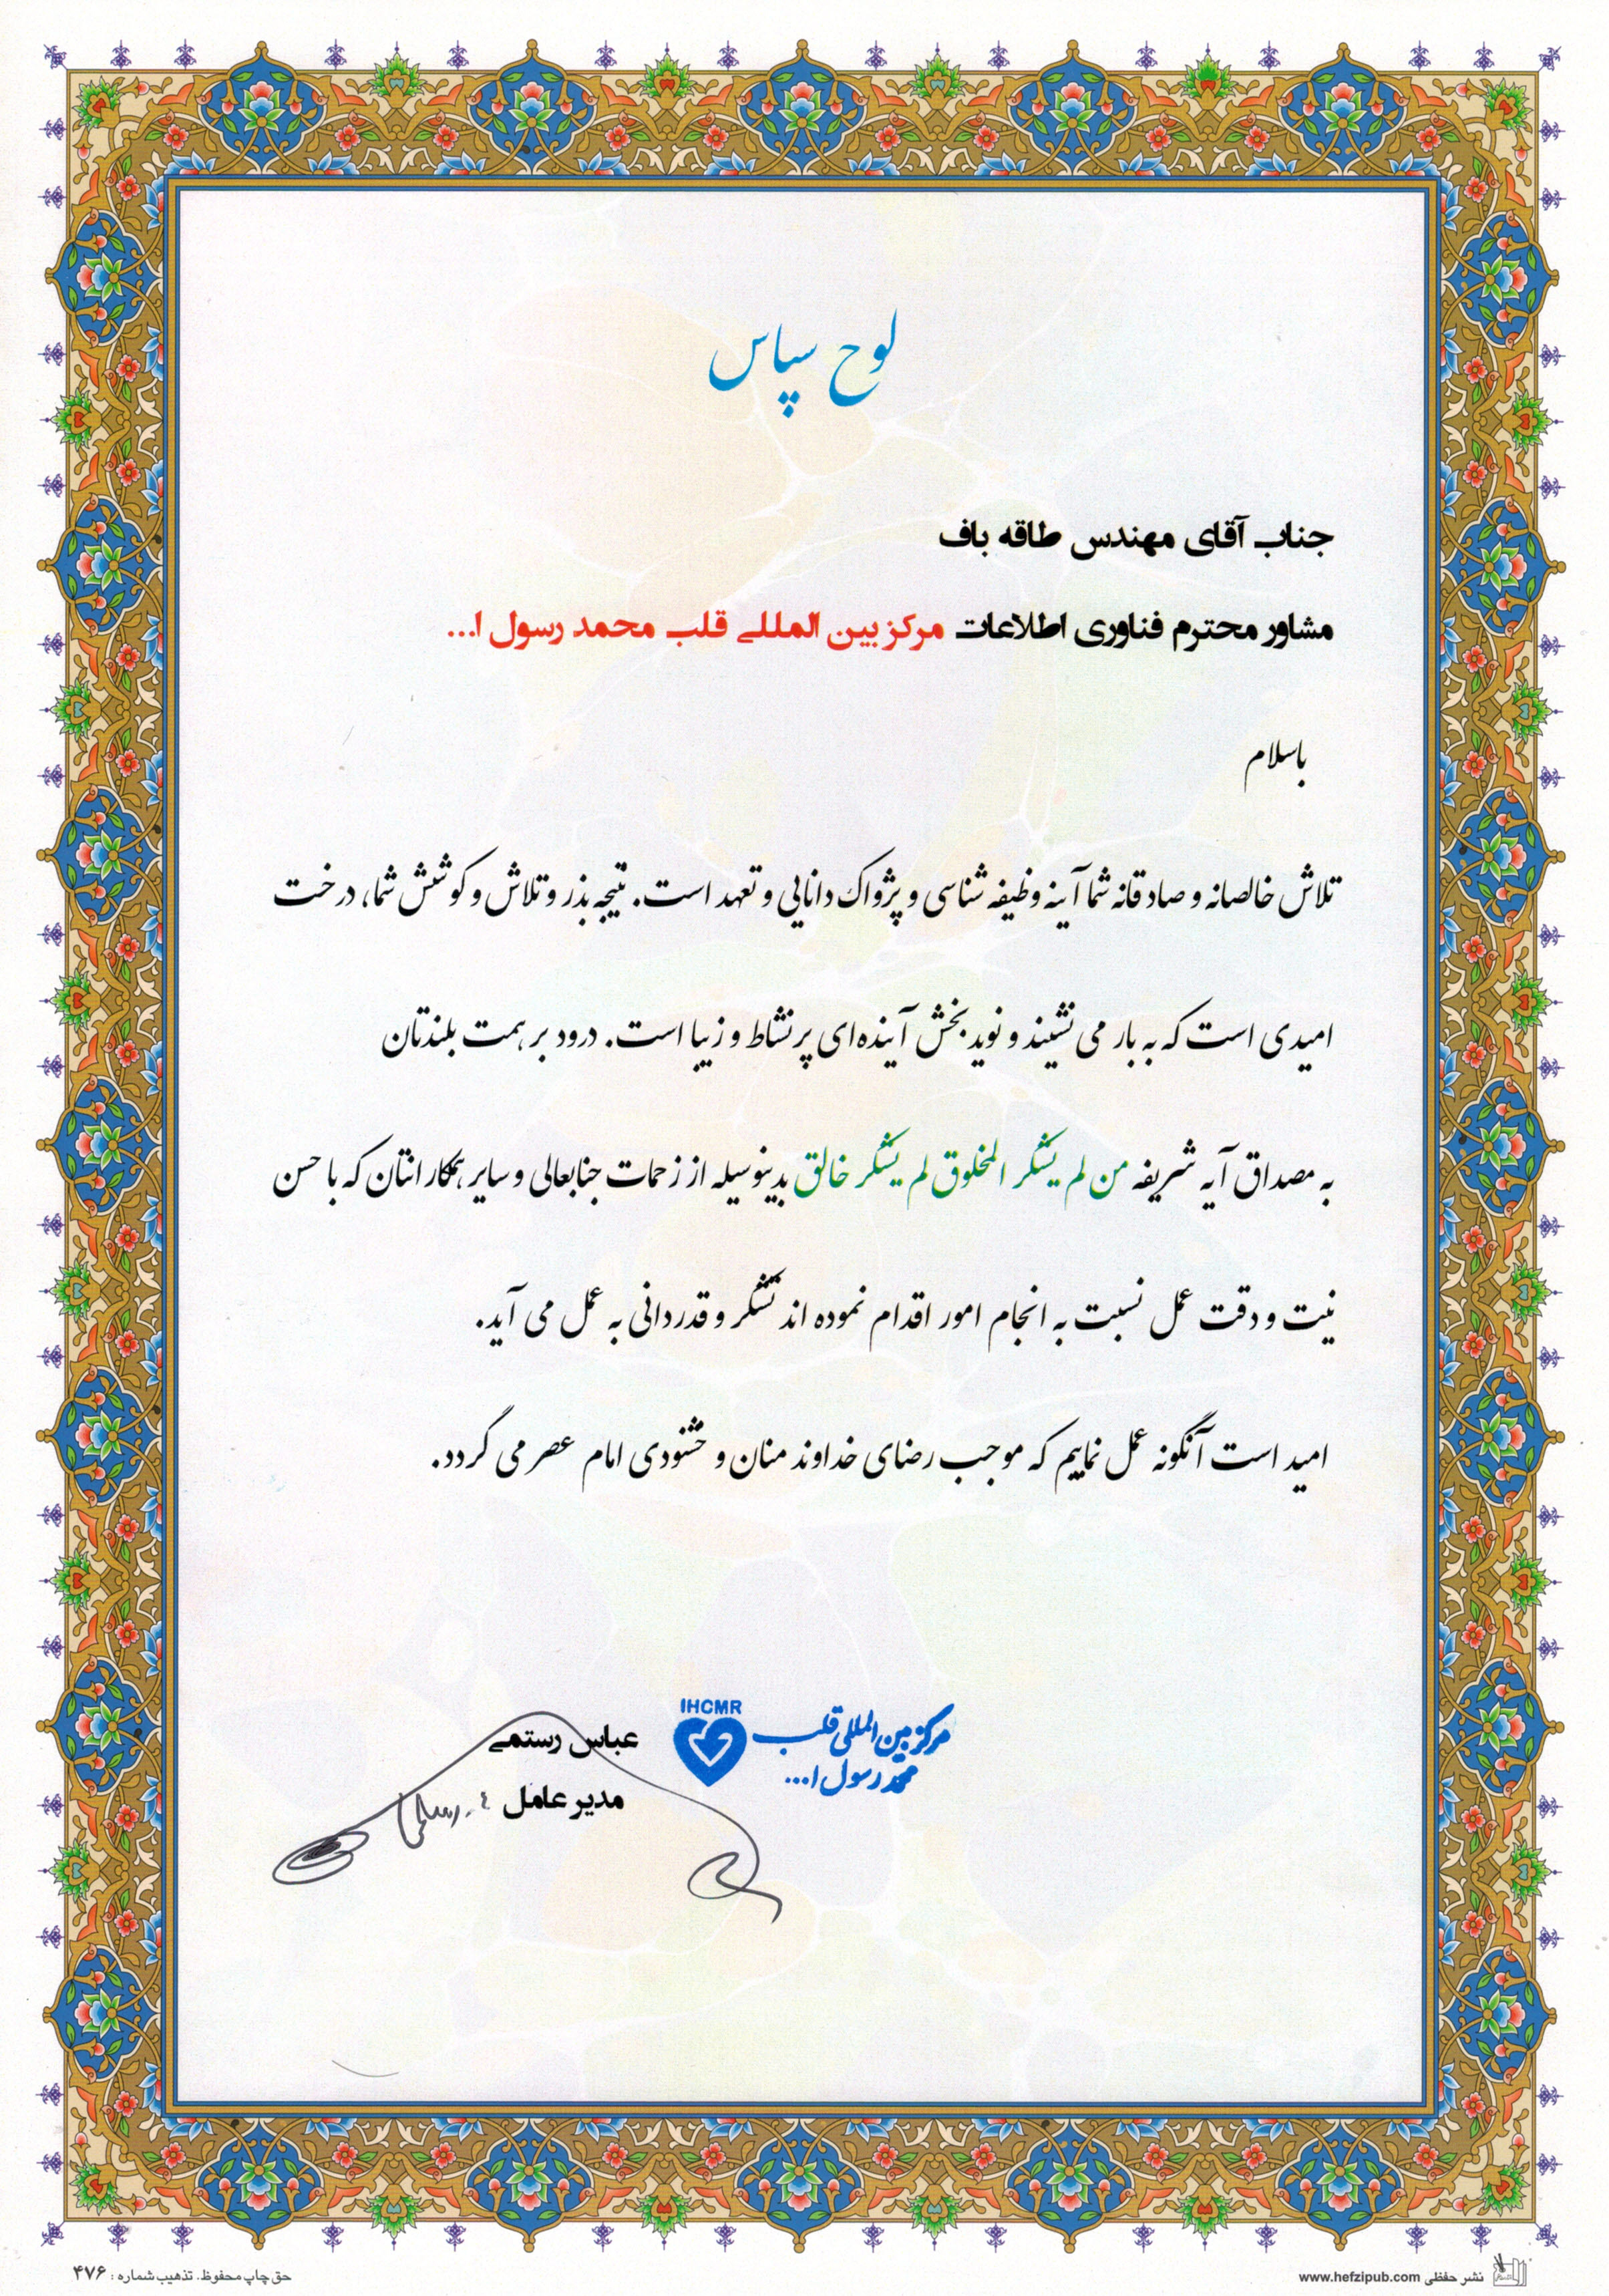 لوح سپاس
جناب آقای مهندس طاقه باف
مشاور محترم فناوری اطلاعات مرکز بین المللی قلب محمد رسول ا...
باسلام
تلاش خالصانه و صادقانه شما آینه وظیفه شناسی و پژواک دانایی و تعهد است. نتیجه بذر و تلاش و کوشش شما، درخت
امیدی است که به بار می نشیند و نوید بخش آینده ای پر نشاط و زیبا است. درود بر همت بلندتان
به مصداق آیه شریفه من لم یشکر المخلوق لم یشکر خالق بدینوسیله از زحمات جنابعالی و سایر همکارانتان که با حسن
نیت و دقت عمل نسبت به انجام امور اقدام نموده اند تشکر و قدردانی به عمل می آید.
امید است آنگونه عمل نماییم که موجب رضای خداوند منان و خشنودی امام عصر می گردد.
IHCMR
مرکز بین المللی قلب
محمد رسول ا...
عباس رستمی
مدیر عامل
نشر حفظی www.hefzipub.com
حق چاپ محفوظ. تذهیب شماره : ۴۷۶